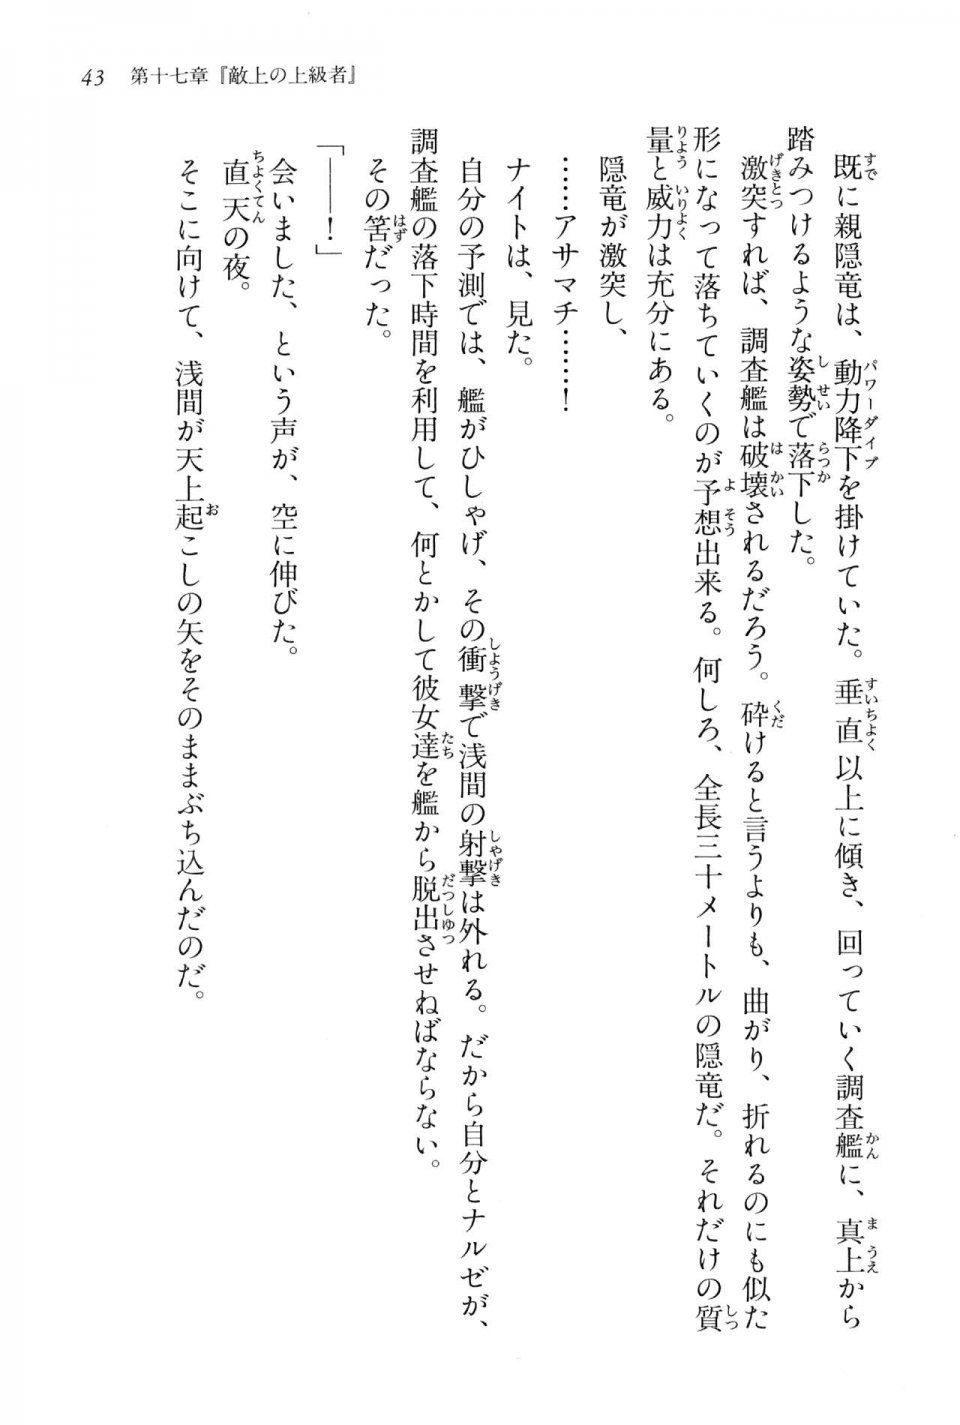 43　第十七章『敵上の上級者』
既に親隠竜は、動力降下を掛けていた。垂直以上に傾き、回っていく調査艦に、真上から
踏みつけるような姿勢で落下した。
激突すれば、調査艦は破壊されるだろう。砕けると言うよりも、曲がり、折れるのにも似た
形になって落ちていくのが予想出来る。何しろ、全長三十メートルの隠竜だ。それだけの質
量と威力は充分にある。
隠竜が激突し、
……アサマチ……！
ナイトは、見た。
自分の予測では、艦がひしゃげ、その衝撃で浅間の射撃は外れる。だから自分とナルゼが、
調査艦の落下時間を利用して、何とかして彼女達を艦から脱出させねばならない。
その筈だった。
「――！」
会いました、という声が、空に伸びた。
直天の夜。
そこに向けて、浅間が天上起こしの矢をそのままぶち込んだのだ。